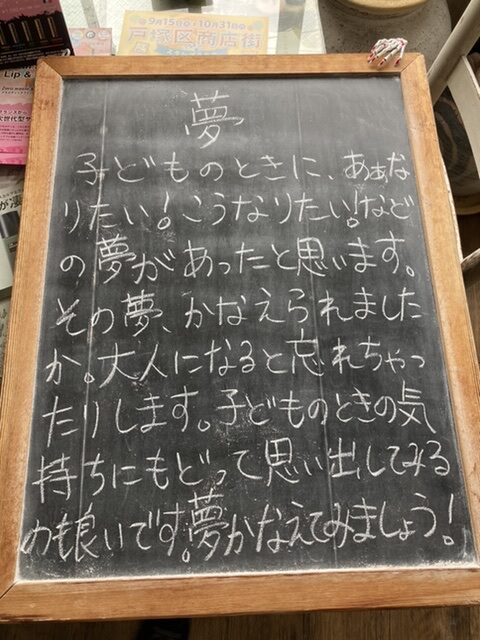 9月15日 10月31日
戸塚区商店街
Lip &
夢
子どものときに、あぁな
りたい!こうなりたい!など
の夢があったと思います。
その夢、かなえられました
か。大人になると忘れちゃっ
たりします。子どものときの気
持ちにもどって思い出してみる
のも良いです。夢かなえてみましょう!